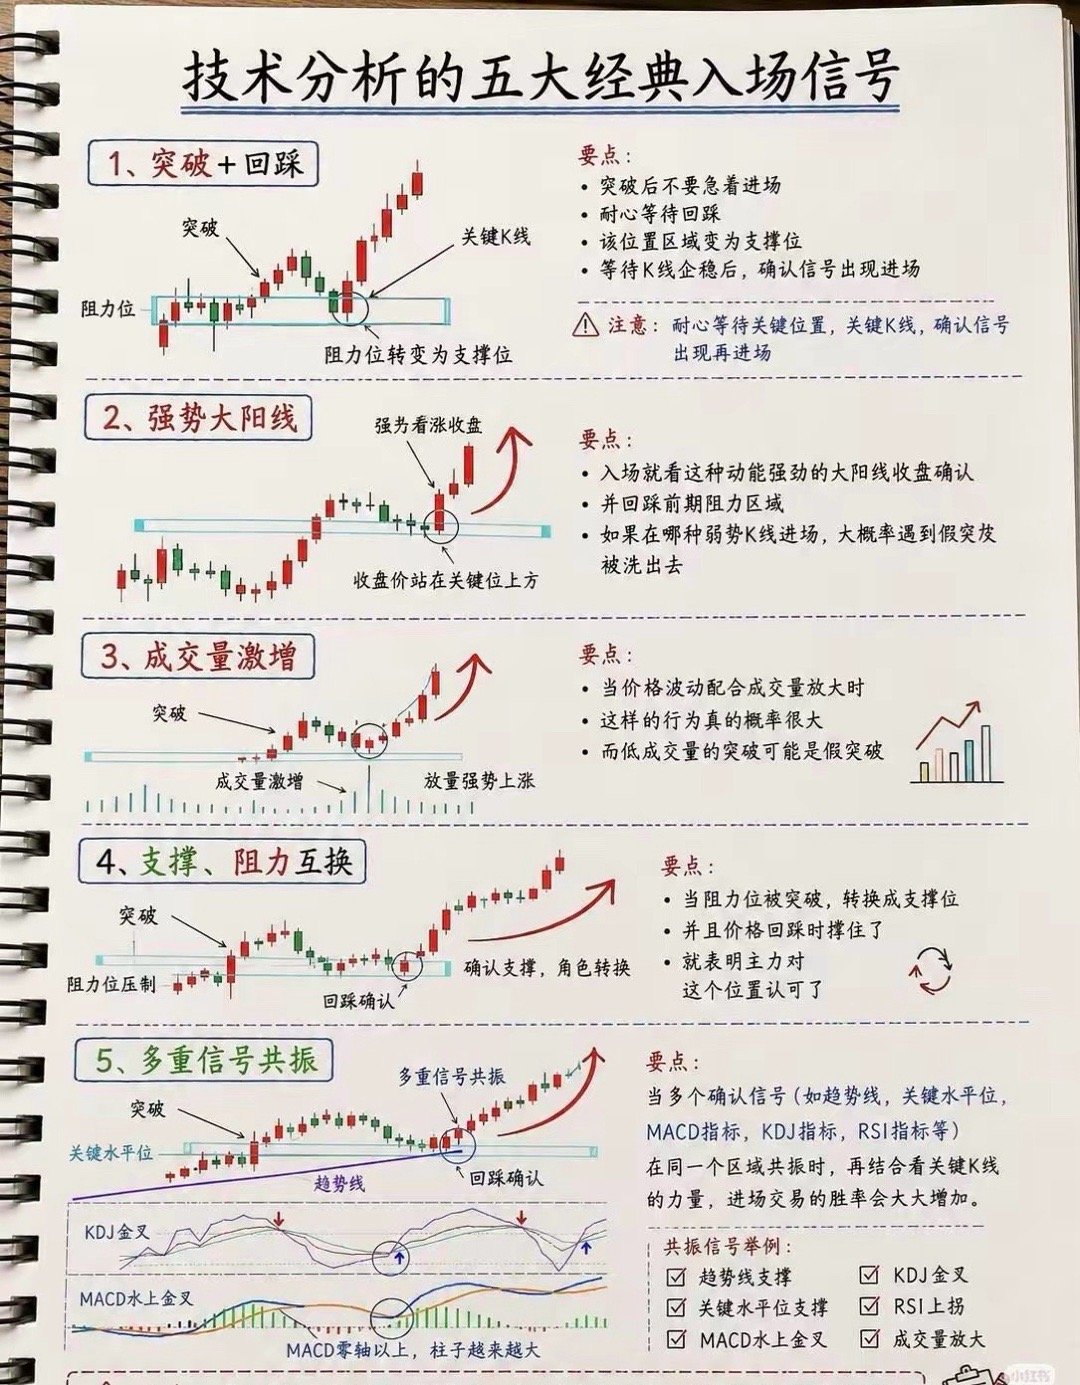 技术分析的五大经典入场信号
1、突破+回踩
突破
关键K线
阻力位
阻力位转变为支撑位
要点：
• 突破后不要急着进场
• 耐心等待回踩
• 该位置区域变为支撑位
• 等待K线企稳后，确认信号出现进场
注意：耐心等待关键位置，关键K线，确认信号
出现再进场
2、强势大阳线
强势看涨收盘
收盘价站在关键位上方
要点：
• 入场就看这种动能强劲的大阳线收盘确认
• 并回踩前期阻力区域
• 如果在哪种弱势K线进场，大概率遇到假突发
被洗出去
3、成交量激增
突破
成交量激增
放量强势上涨
要点：
• 当价格波动配合成交量放大时
• 这样的行为真的概率很大
• 而低成交量的突破可能是假突破
4、支撑、阻力互换
突破
阻力位压制
回踩确认
确认支撑，角色转换
要点：
• 当阻力位被突破，转换成支撑位
• 并且价格回踩时撑住了
• 就表明主力对
这个位置认可了
5、多重信号共振
多重信号共振
突破
关键水平位
趋势线
回踩确认
KDJ金叉
MACD水上金叉
MACD零轴以上，柱子越来越大
要点：
当多个确认信号（如趋势线，关键水平位，
MACD指标，KDJ指标，RSI指标等）
在同一个区域共振时，再结合看关键K线
的力量，进场交易的胜率会大大增加。
共振信号举例：
☑ 趋势线支撑
☑ KDJ金叉
☑ 关键水平位支撑
☑ RSI上拐
☑ MACD水上金叉
☑ 成交量放大
小红书